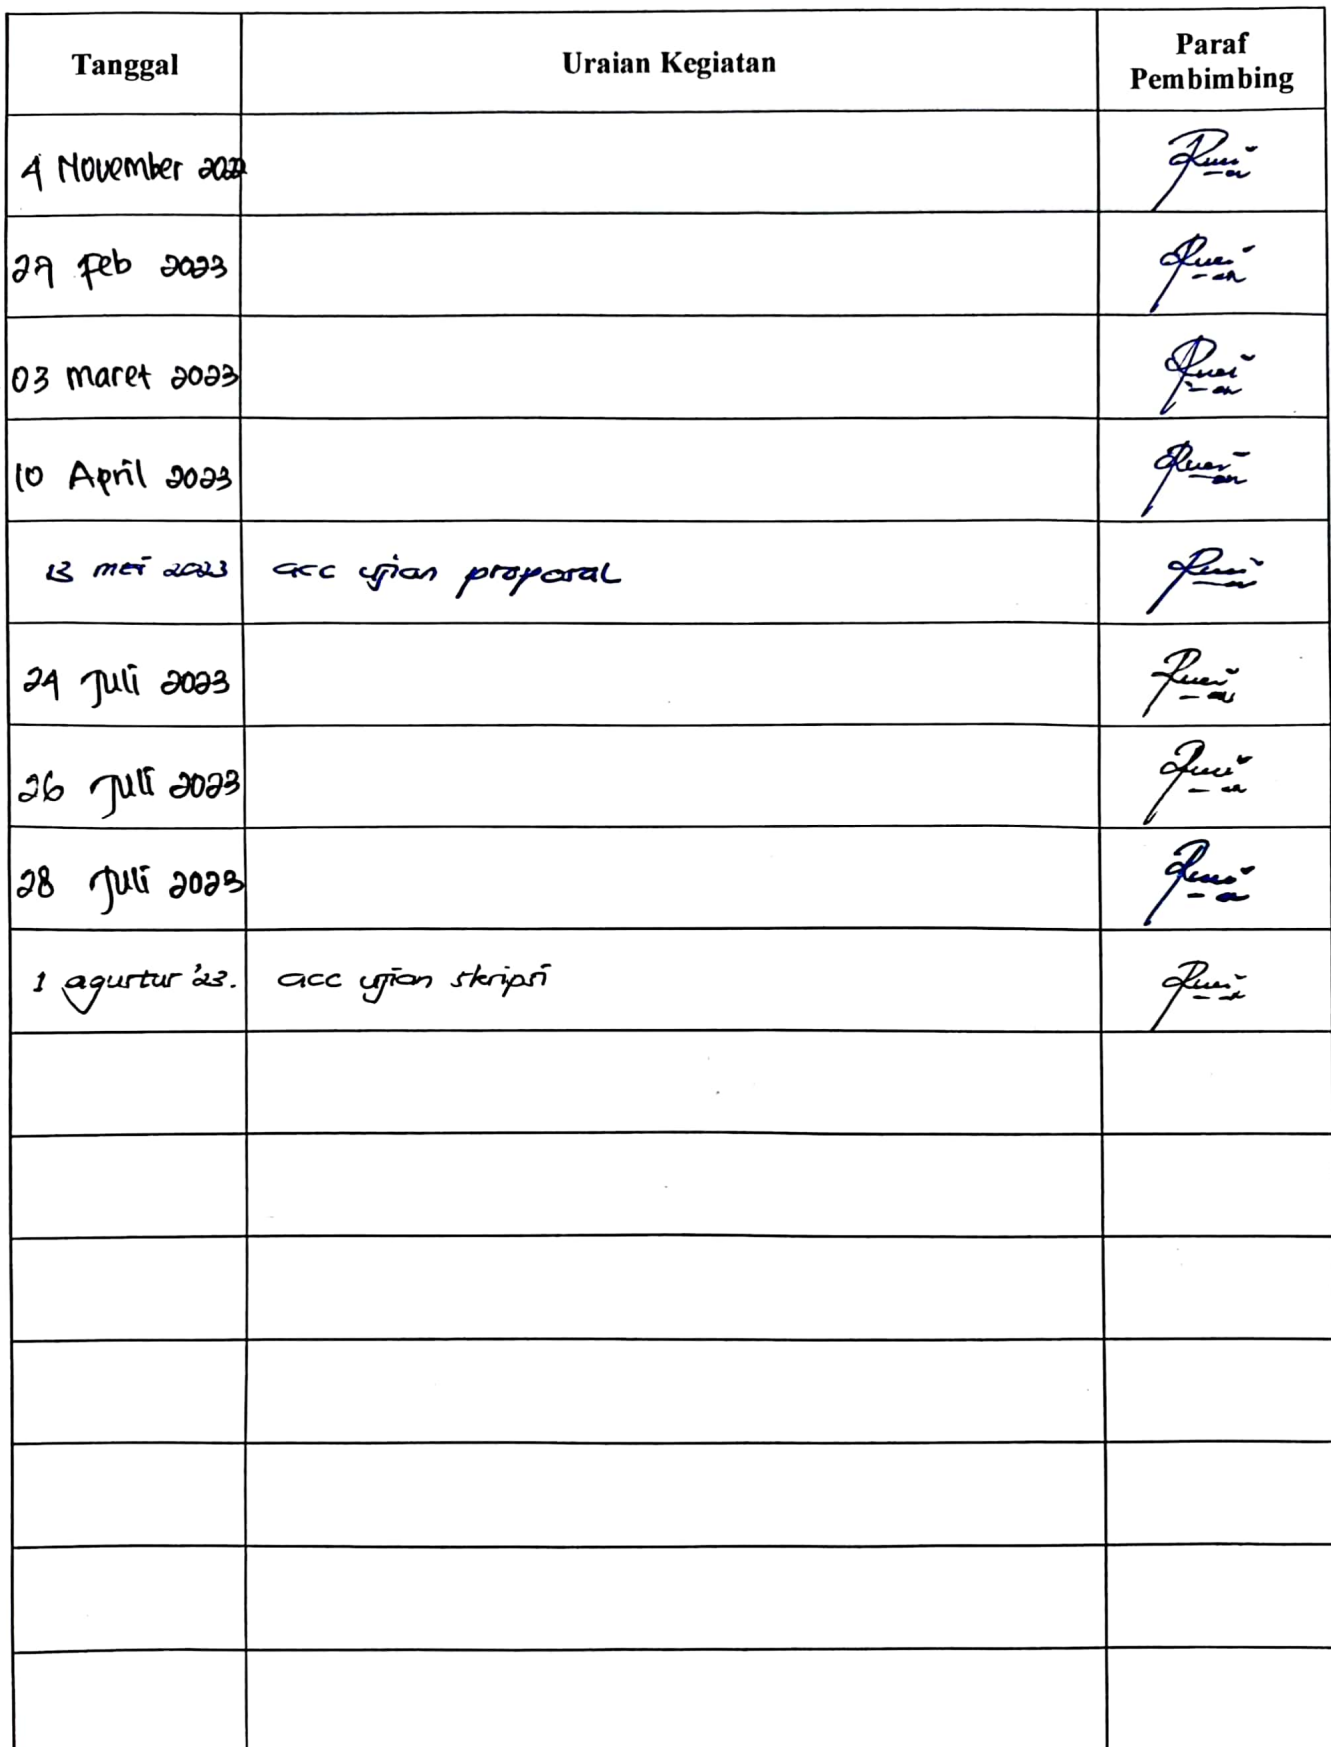 Tanggal
Uraian Kegiatan
Paraf
Pembimbing
4 November 2022
Feb 2023
03 Maret 2023
10 April 2023
13 mei 2023
acc ujian proposal
24 Juli 2023
26 Juli 2023
28 Juli 2023
1 agustus '23.
acc ujian skripsi